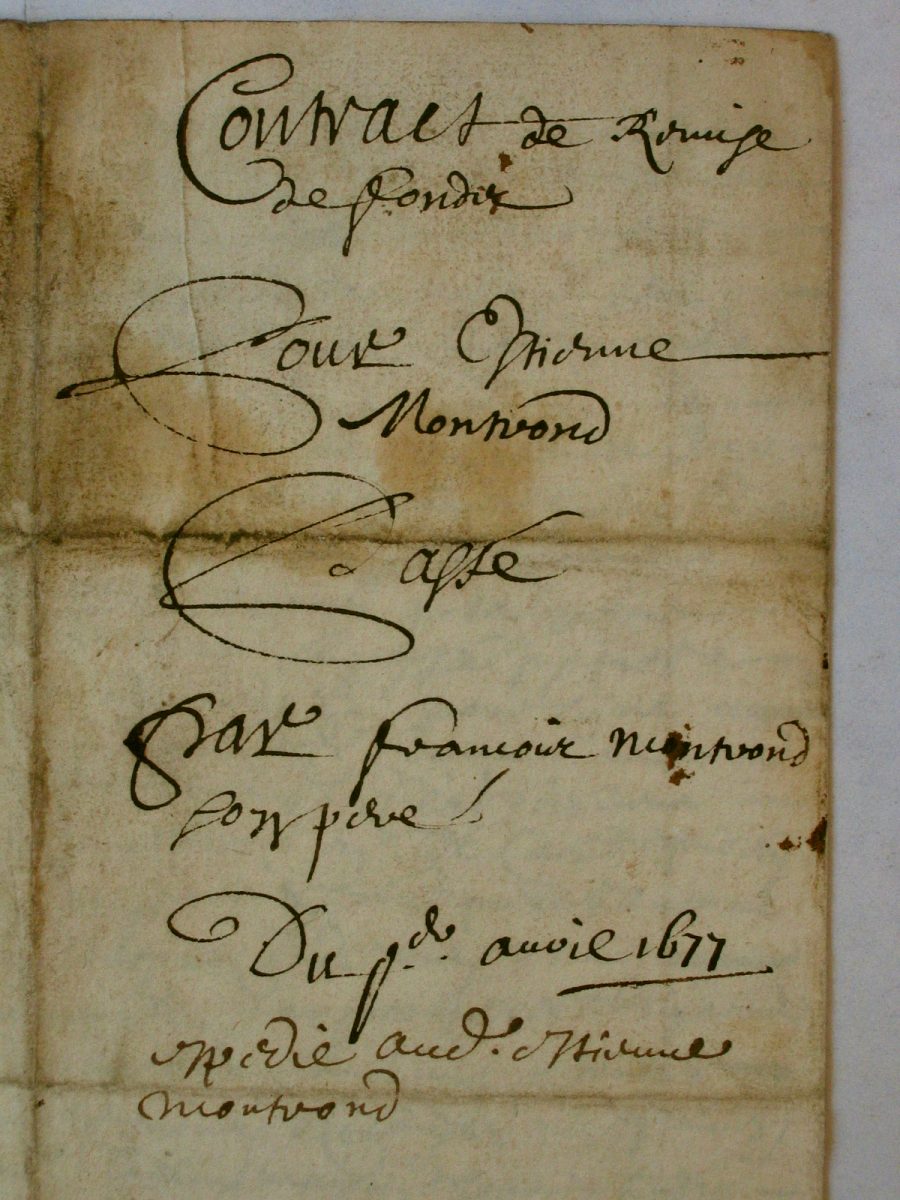 Contract de Remise
de fondz
Pour Estienne
Montrond
Passé
Par Francois Montrond
son pere
Du p.er avril 1677
expedie aud.t estienne
montrond